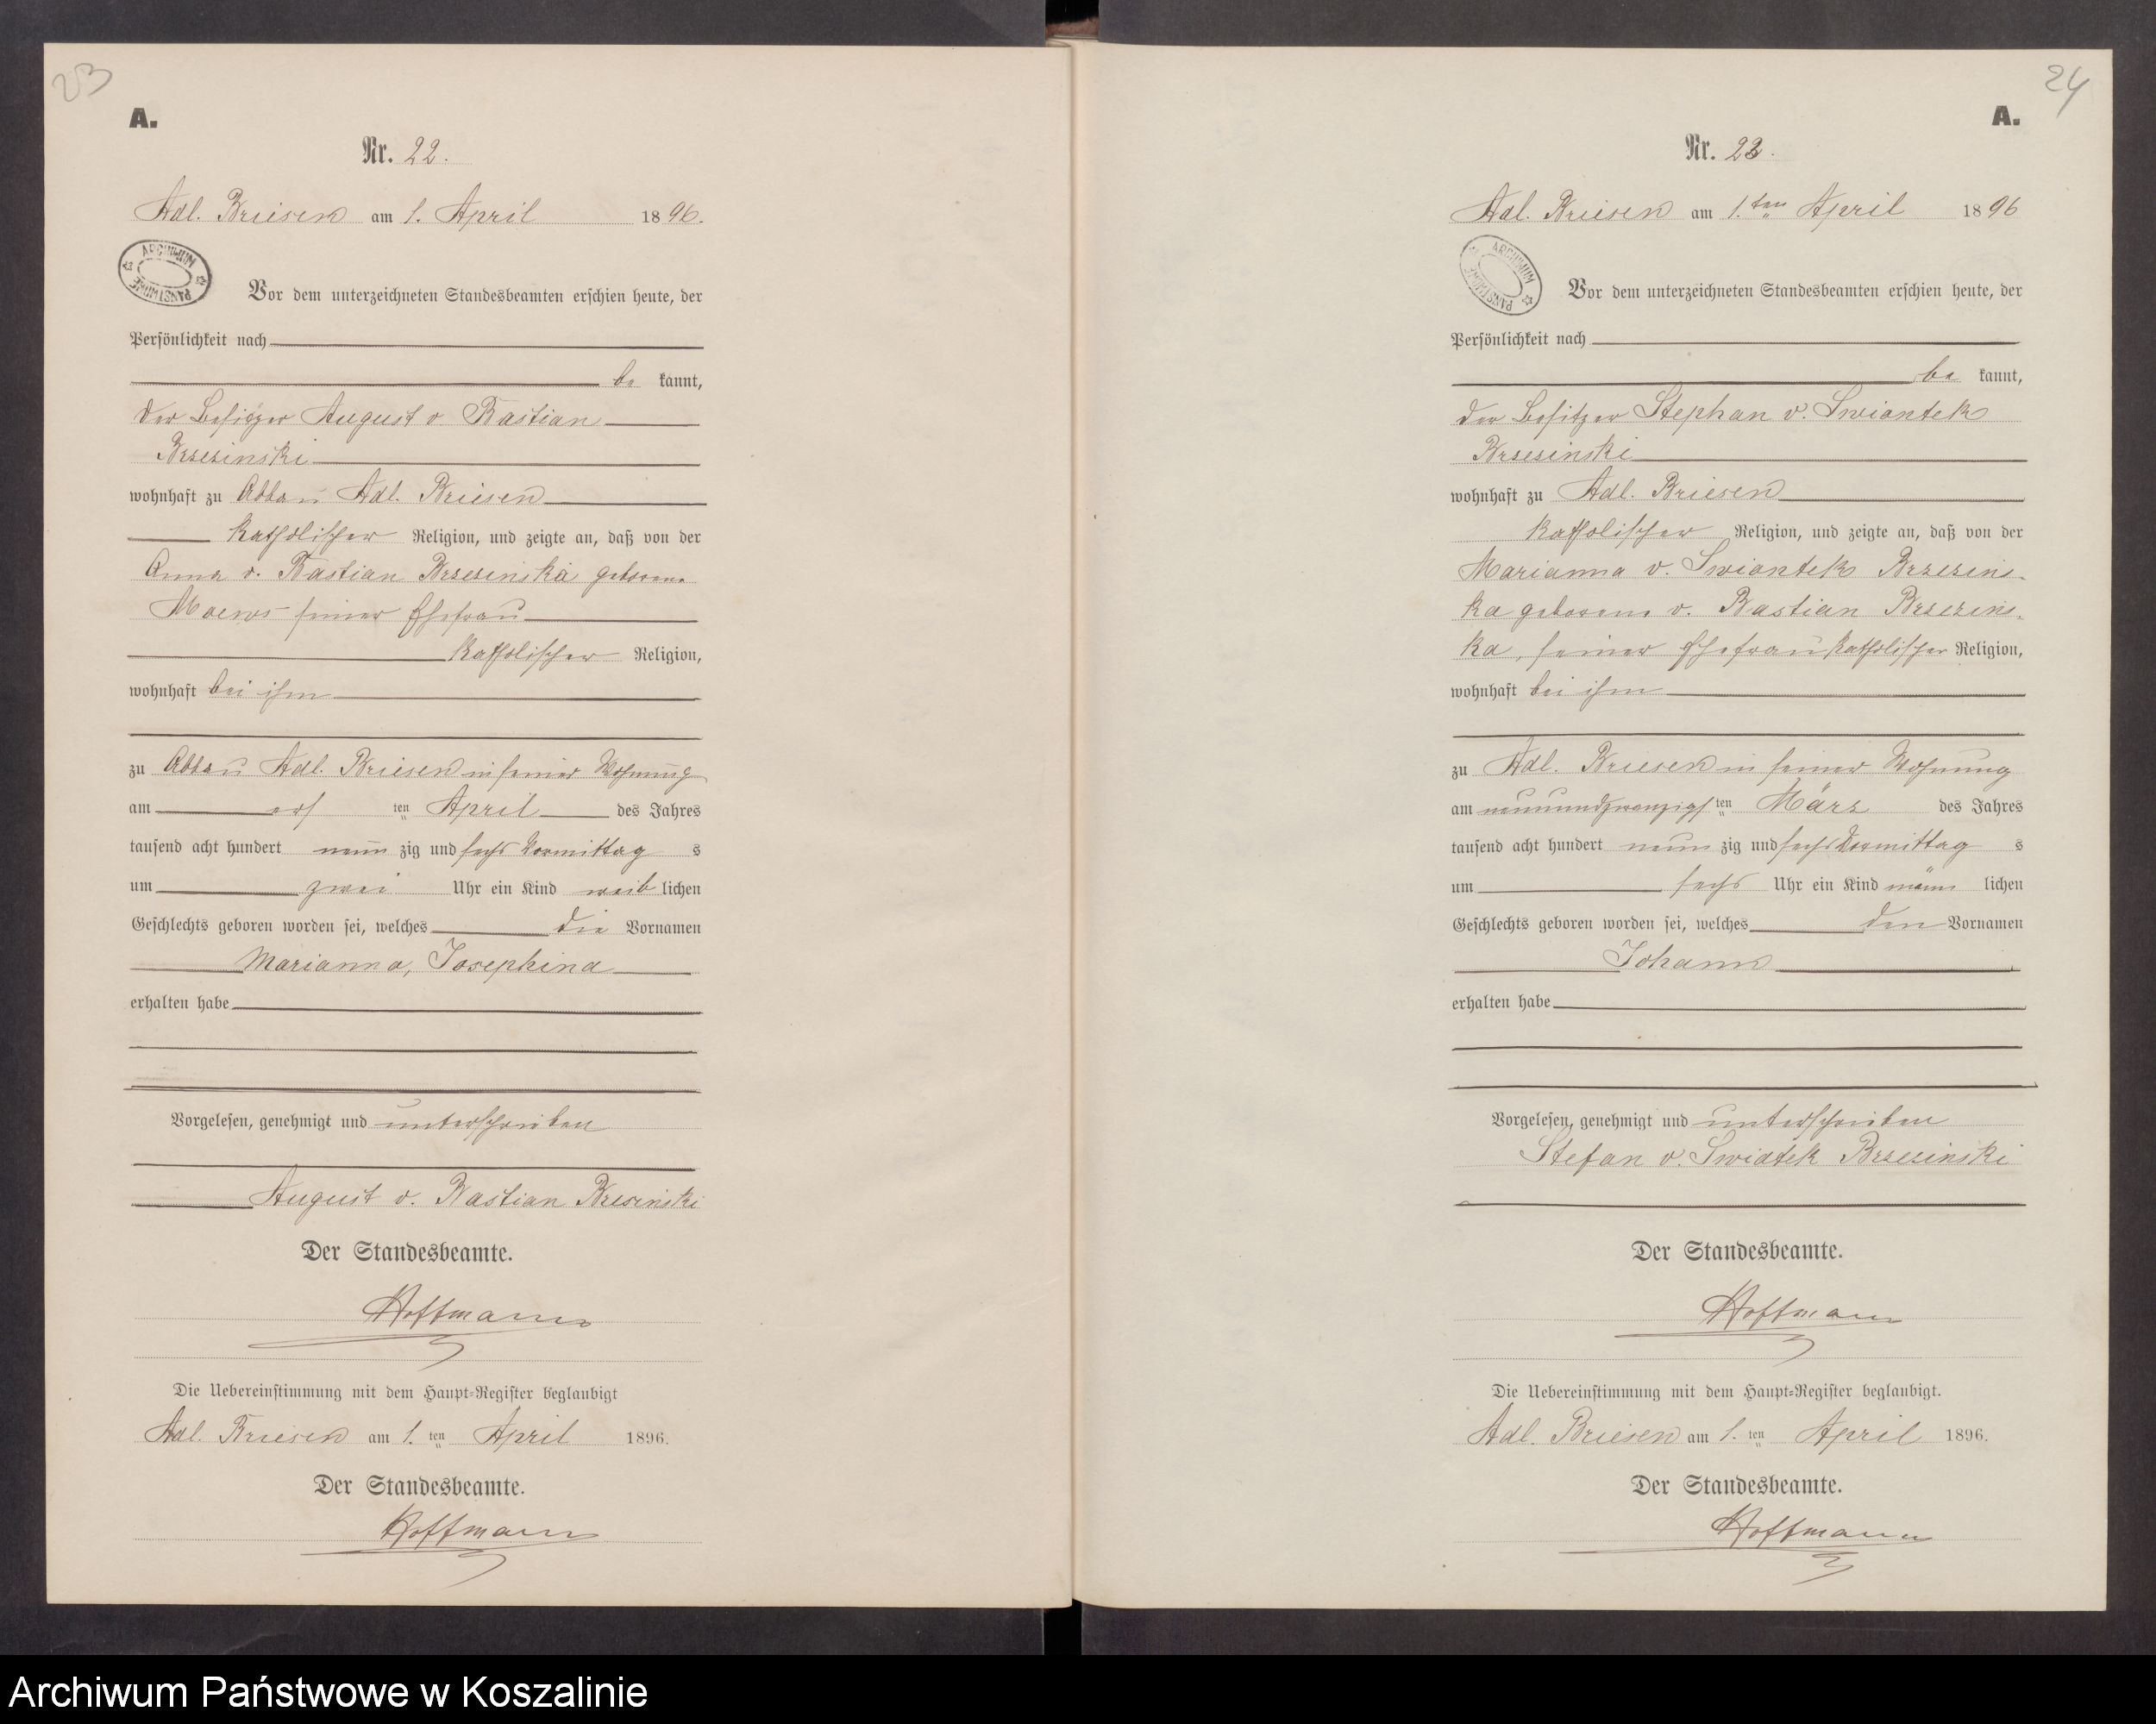 23
A.
Nr. 22.
Adl. Briesen am 1. April 1896.
ARCHIWUM PAŃSTWOWE
Vor dem unterzeichneten Standesbeamten erschien heute, der
Persönlichkeit nach
be kannt,
der Besitzer August v. Bastian
Brzezinski
wohnhaft zu Abbau Adl. Briesen
katholischer Religion, und zeigte an, daß von der
Anna v. Bastian Brzezinska geborene
Moews seiner Ehefrau
katholischer Religion,
wohnhaft bei ihm
zu Abbau Adl. Briesen in seiner Wohnung
am ersten April des Jahres
tausend acht hundert neunzig und sechs Vormittags
um zwei Uhr ein Kind weiblichen
Geschlechts geboren worden sei, welches die Vornamen
Marianna, Josephina
erhalten habe
Vorgelesen, genehmigt und unterschrieben
August v. Bastian Bresinski
Der Standesbeamte.
Hoffmann
Die Uebereinstimmung mit dem Haupt-Register beglaubigt
Adl. Briesen am 1. ten April 1896.
Der Standesbeamte.
Hoffmann
24
A.
Nr. 23.
Adl. Briesen am 1. ten April 1896
ARCHIWUM PAŃSTWOWE
Vor dem unterzeichneten Standesbeamten erschien heute, der
Persönlichkeit nach
be kannt,
der Besitzer Stephan v. Swiontek
Brzezinski
wohnhaft zu Adl. Briesen
katholischer Religion, und zeigte an, daß von der
Marianna v. Swiontek Brzezins-
ka geborene v. Bastian Brzezins-
ka, seiner Ehefrau katholischer Religion,
wohnhaft bei ihm
zu Adl. Briesen in seiner Wohnung
am neunundzwanzigsten März des Jahres
tausend acht hundert neunzig und sechs Vormittags
um sechs Uhr ein Kind männlichen
Geschlechts geboren worden sei, welches den Vornamen
Johann
erhalten habe
Vorgelesen, genehmigt und unterschrieben
Stefan v. Swiatek Brzezinski
Der Standesbeamte.
Hoffmann
Die Uebereinstimmung mit dem Haupt-Register beglaubigt.
Adl. Briesen am 1. ten April 1896.
Der Standesbeamte.
Hoffmann
Archiwum Państwowe w Koszalinie